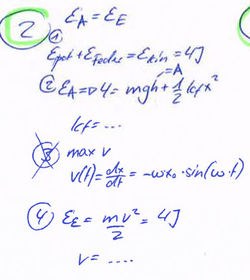 2 E_A = E_E
① E_pot + E_Feder = E_kin = 4J
② E_A = D 4 = mgh + 1/2 kf x²
= A
kf = ...
③ max v
v(t) = dx/dt = -ωx₀ · sin(ω·t)
④ E_E = mv²/2 = 4J
v = ....